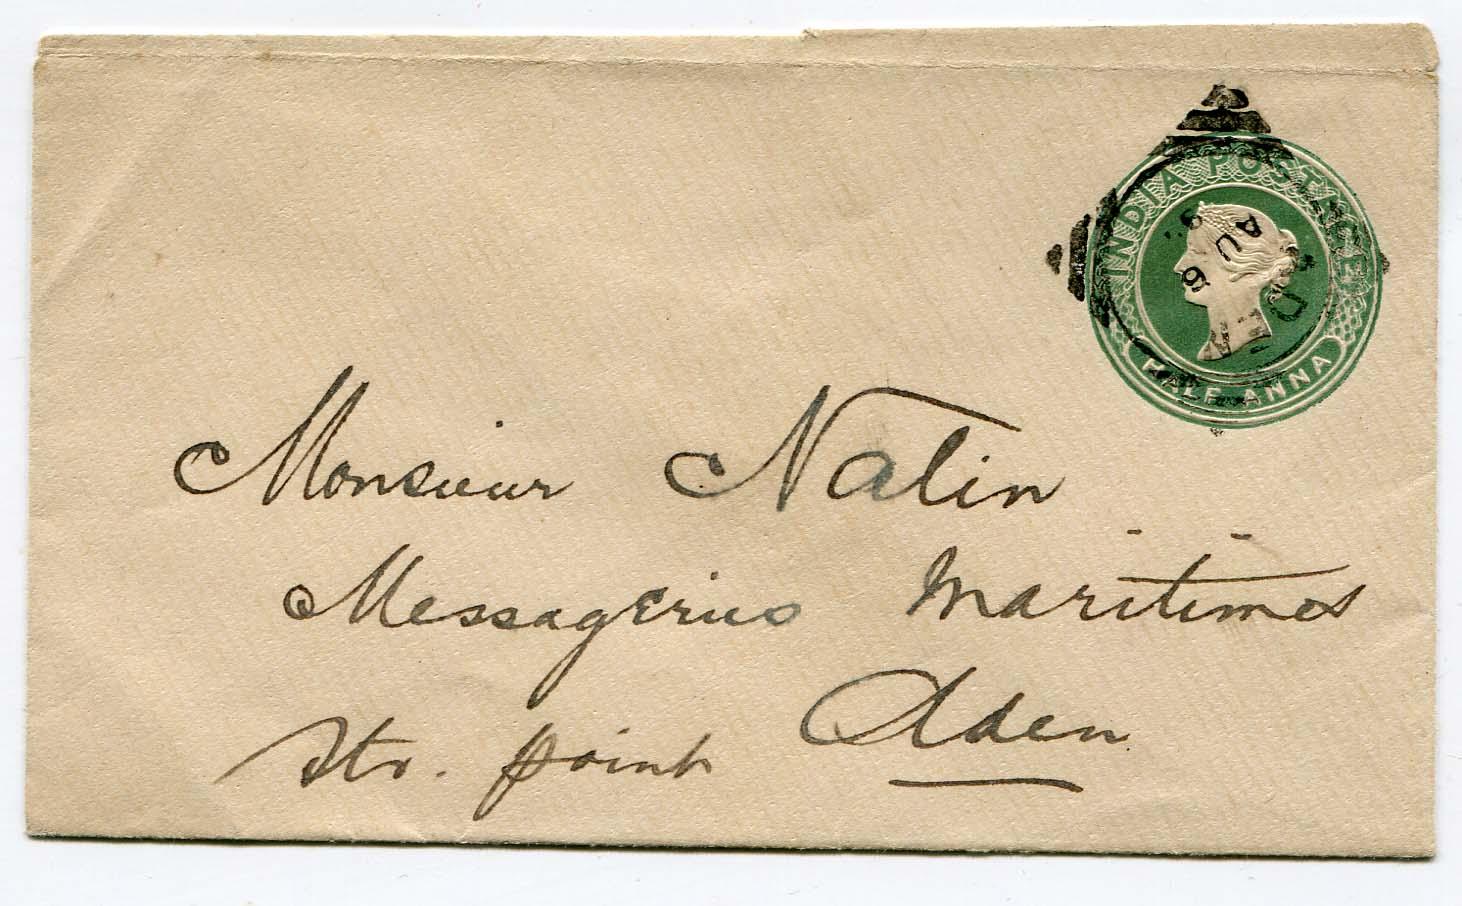 INDIA POSTAGE
HALF ANNA
AU 6
Monsieur Natin
Messageries Maritimes
Aden
Str. point